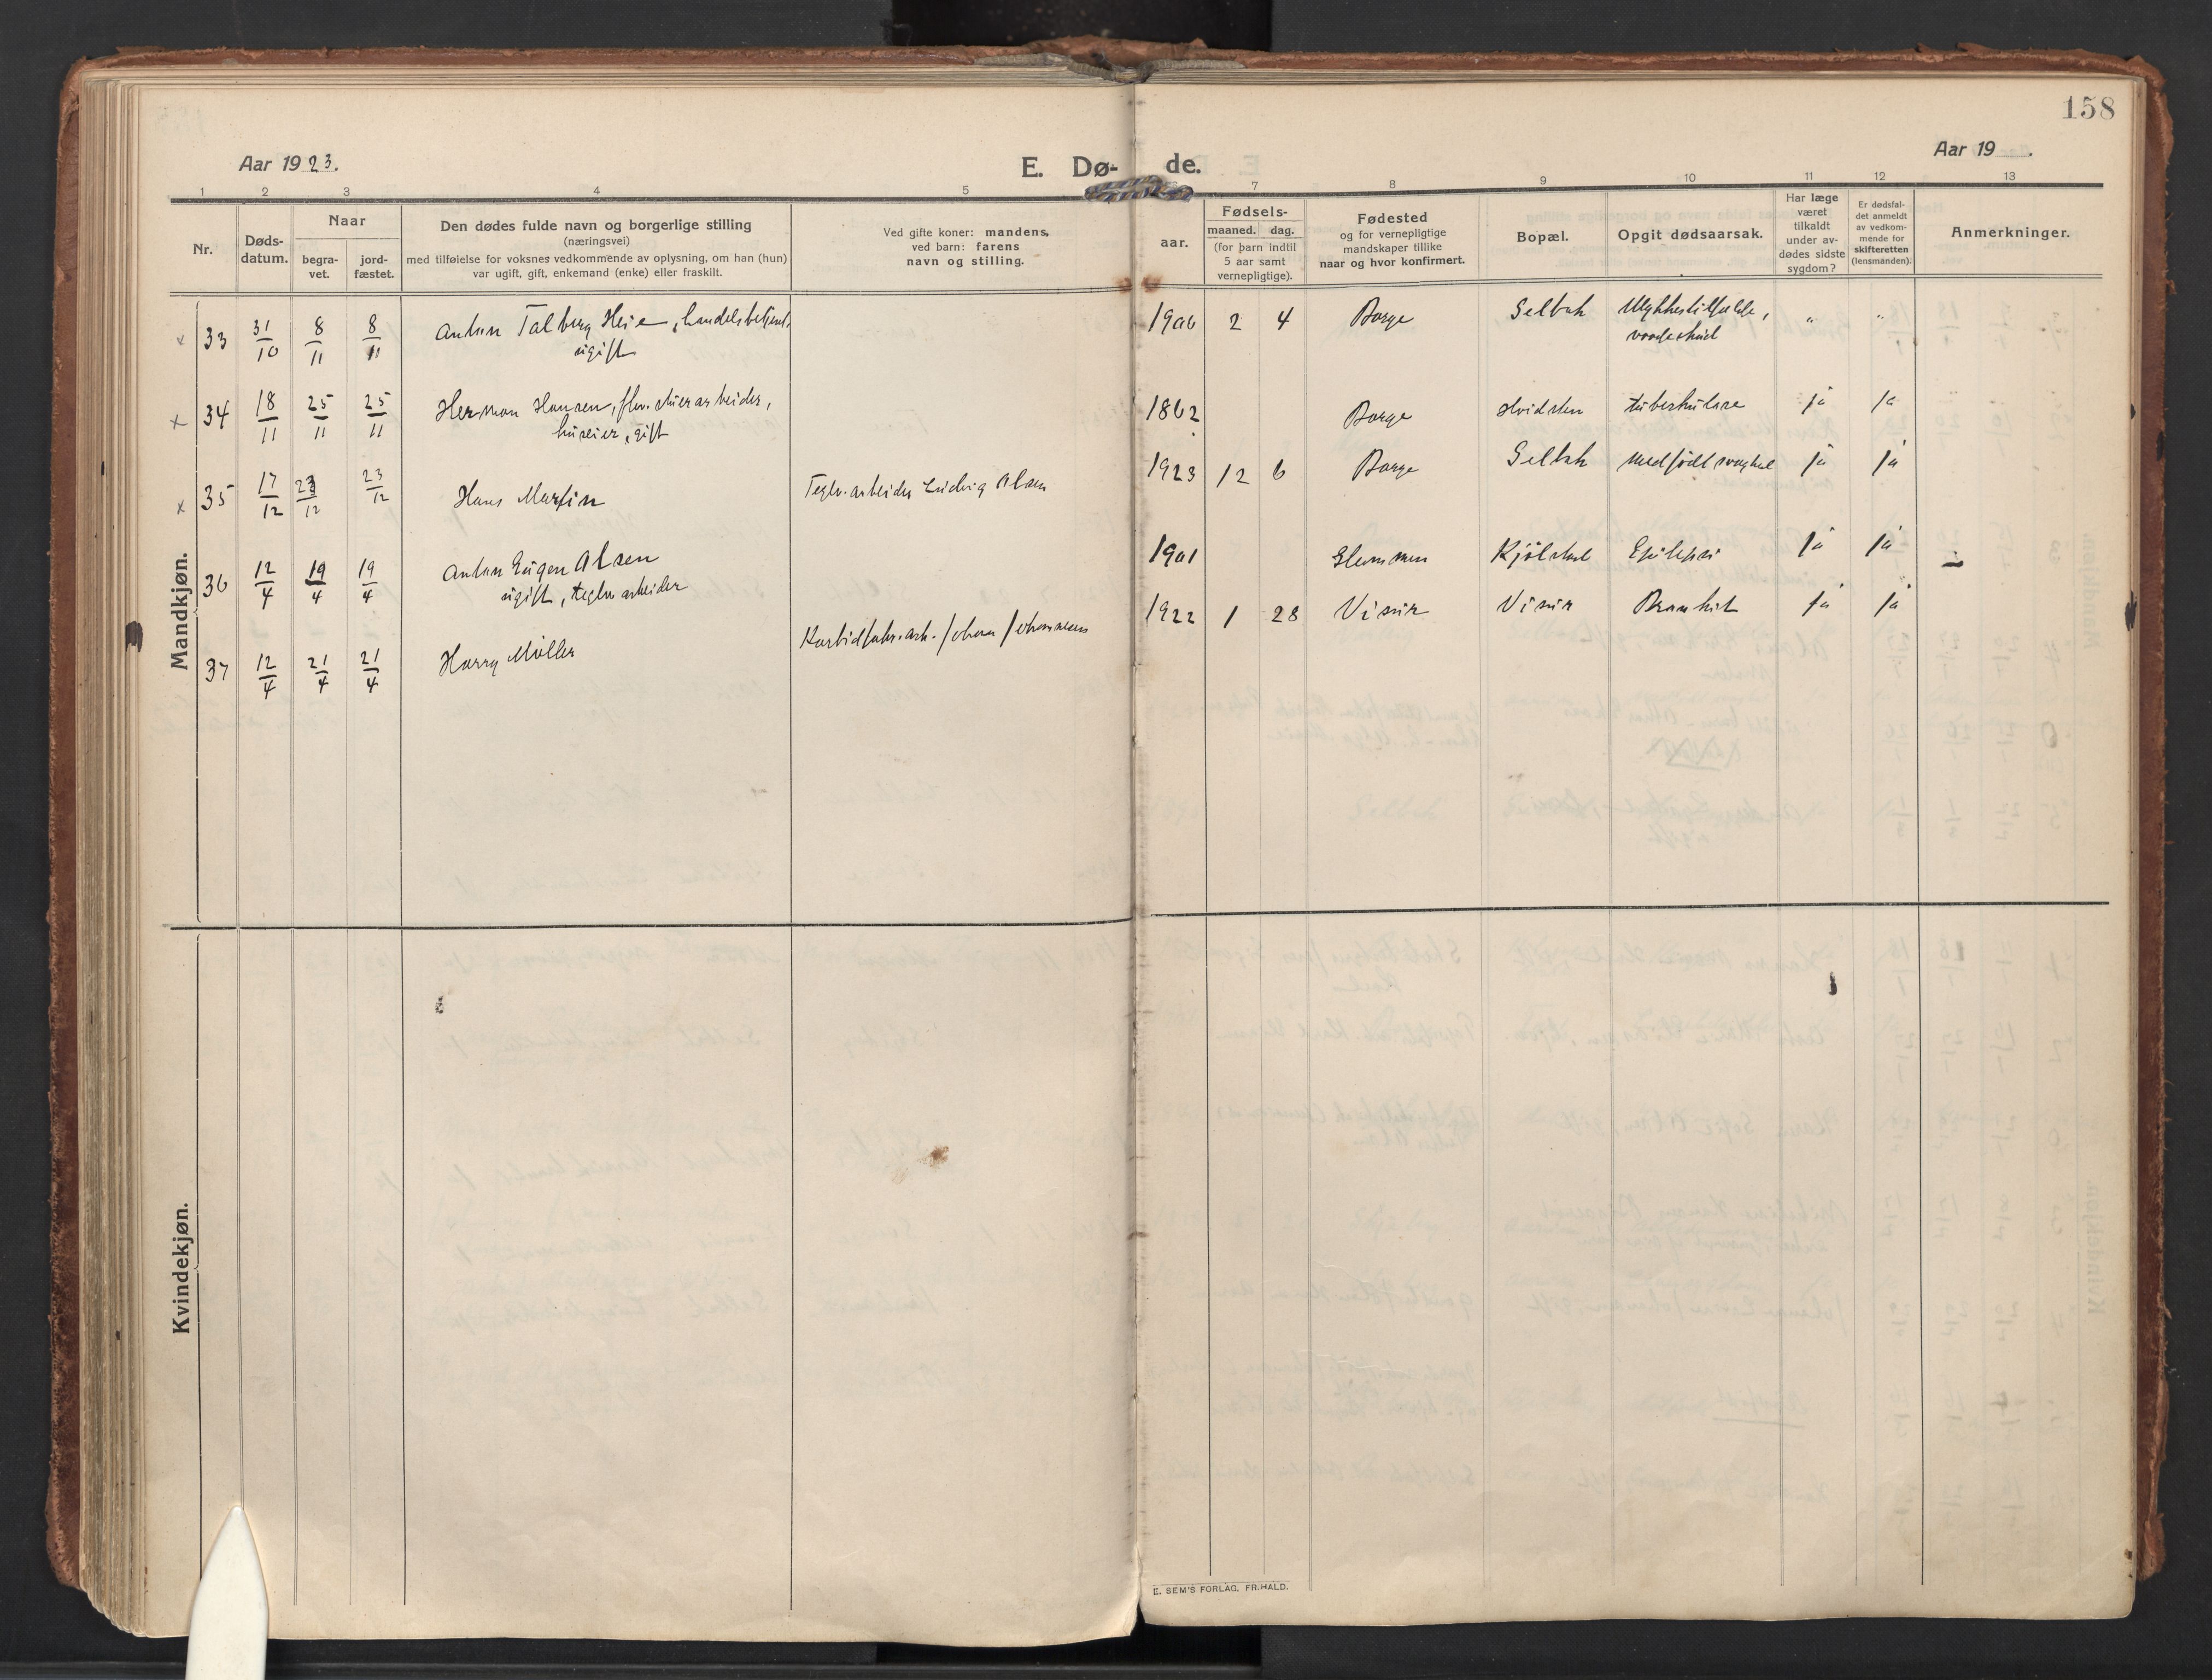 158
Aar 1923.
E. Dø- de.
Aar 19 .
1 2 3 4 5 7 8 9 10 11 12 13
Nr.
Døds-
datum.
Naar
begra-
vet.
jord-
fæstet.
Den dødes fulde navn og borgerlige stilling
(næringsvei)
med tilføielse for voksnes vedkommende av oplysning, om han (hun)
var ugift, gift, enkemand (enke) eller fraskilt.
Ved gifte koner: mandens,
ved barn: farens
navn og stilling.
Fødsels-
aar.
maaned. dag.
(for barn indtil
5 aar samt
vernepligtige).
Fødested
og for vernepligtige
mandskaper tillike
naar og hvor konfirmert.
Bopæl.
Opgit dødsaarsak.
Har læge
været
tilkaldt
under av-
dødes sidste
sygdom?
Er dødsfal-
det anmeldt
av vedkom-
mende for
skifteretten
(lensmanden).
Anmerkninger.
Mandkjøn.
x 33 31/10 8/11 8/11 Anton Talberg Heie, handelsbetjent, 1906 2 4 Borge Selbak Ulykkestilfælde, " "
ugift vaadeskud
x 34 18/11 25/11 25/11 Herman Hansen, arbeider, 1862 Borge Hvidsten tuberkulose ja ja
huseier, gift
x 35 17/12 23/12 23/12 Hans Martin Teglv.arbeider Ludvig Olsen 1923 12 6 Borge Selbak medfødt svaghet ja ja
36 12/4 19/4 19/4 Anton Eugen Olsen 1901 Glemmen Kjølstad Epilepsi ja ja
ugift, teglv.arbeider
37 12/4 21/4 21/4 Harry Møller Karbidfabr.arb. Johan Johannesen 1922 1 28 Visur Visur Bronkit ja ja
Kvindekjøn.
E. SEM'S FORLAG, FR.HALD.